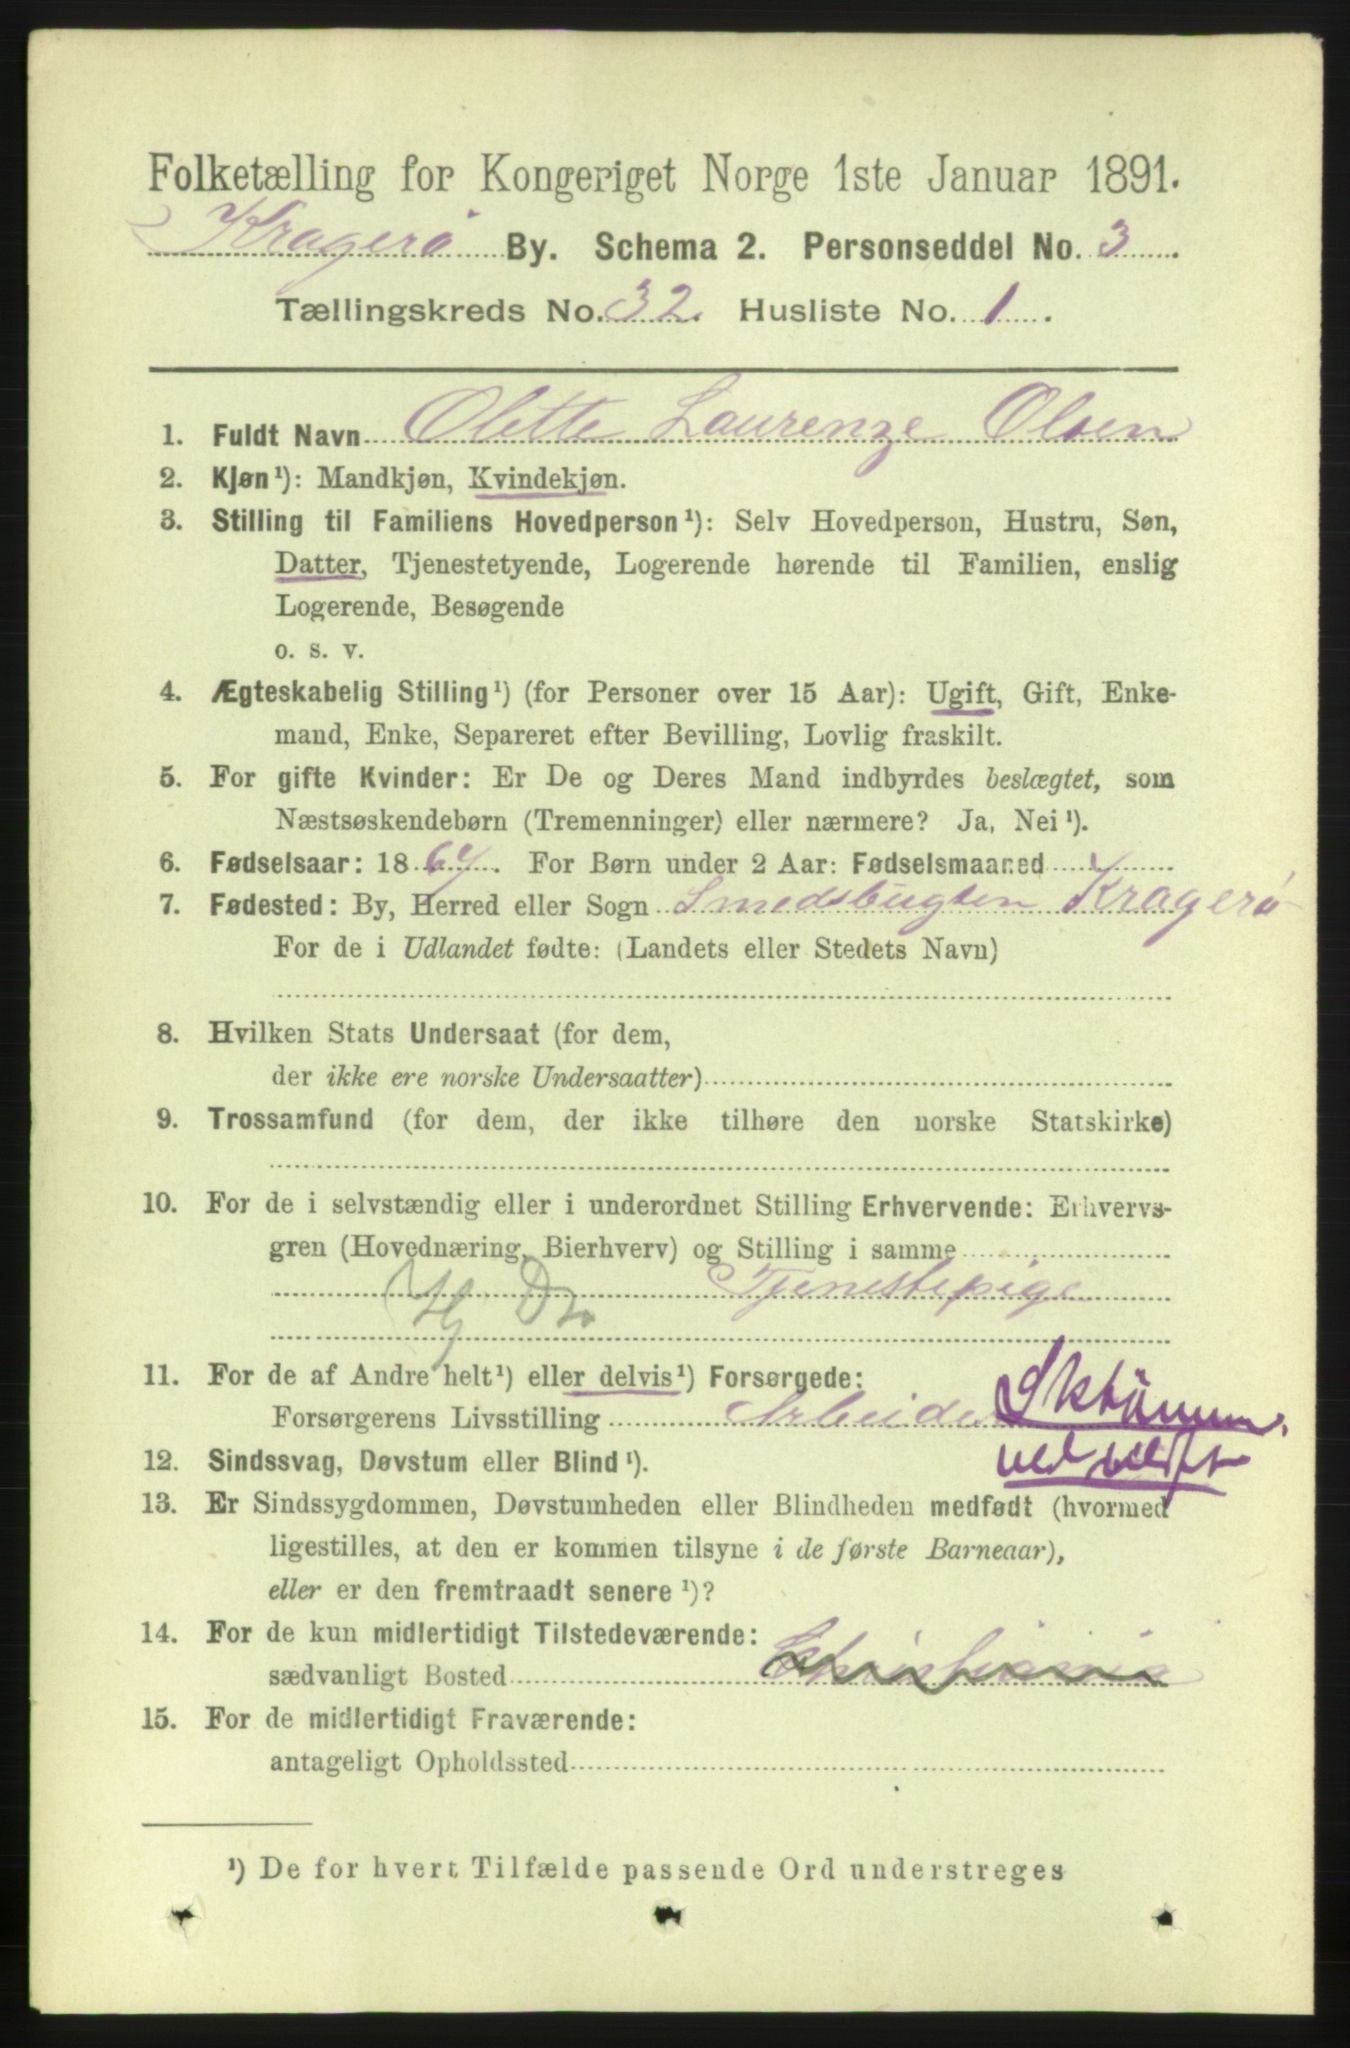 Folketælling for Kongeriget Norge 1ste Januar 1891.
Kragerø By. Schema 2. Personseddel No. 3.
Tællingskreds No. 32. Husliste No. 1.
1. Fuldt Navn Olette Laurenze Olsen
2. Kjøn¹): Mandkjøn, Kvindekjøn.
3. Stilling til Familiens Hovedperson¹): Selv Hovedperson, Hustru, Søn,
Datter, Tjenestetyende, Logerende hørende til Familien, enslig
Logerende, Besøgende
o. s. v.
4. Ægteskabelig Stilling¹) (for Personer over 15 Aar): Ugift, Gift, Enke-
mand, Enke, Separeret efter Bevilling, Lovlig fraskilt.
5. For gifte Kvinder: Er De og Deres Mand indbyrdes beslægtet, som
Næstsøskendebørn (Tremenninger) eller nærmere? Ja, Nei¹).
6. Fødselsaar: 1864. For Børn under 2 Aar: Fødselsmaaned
7. Fødested: By, Herred eller Sogn Smedsbugten Kragerø
For de i Udlandet fødte: (Landets eller Stedets Navn)
8. Hvilken Stats Undersaat (for dem,
der ikke ere norske Undersaatter)
9. Trossamfund (for dem, der ikke tilhøre den norske Statskirke)
10. For de i selvstændig eller i underordnet Stilling Erhvervende: Erhvervs-
gren (Hovednæring, Bierhverv) og Stilling i samme
Tjenestepige
11. For de af Andre helt¹) eller delvis¹) Forsørgede:
Forsørgerens Livsstilling Arbeider
12. Sindssvag, Døvstum eller Blind¹).
13. Er Sindssygdommen, Døvstumheden eller Blindheden medfødt (hvormed
ligestilles, at den er kommen tilsyne i de første Barneaar),
eller er den fremtraadt senere¹)?
14. For de kun midlertidigt Tilstedeværende:
sædvanligt Bosted Christiania
15. For de midlertidigt Fraværende:
antageligt Opholdssted
¹) De for hvert Tilfælde passende Ord understreges